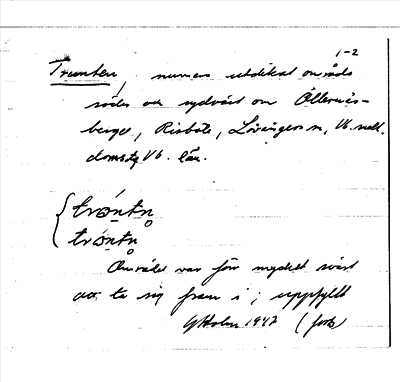 1-2
Trunten, numera utdikat område
söder och sydväst om Ållernäs-
berget, Risbäle, Lövångers sn, Vb. medl.
doms. Vb. län.
Området var förr mycket svårt
att ta sig fram i; uppfyllt
GHolm 1947 (forts)